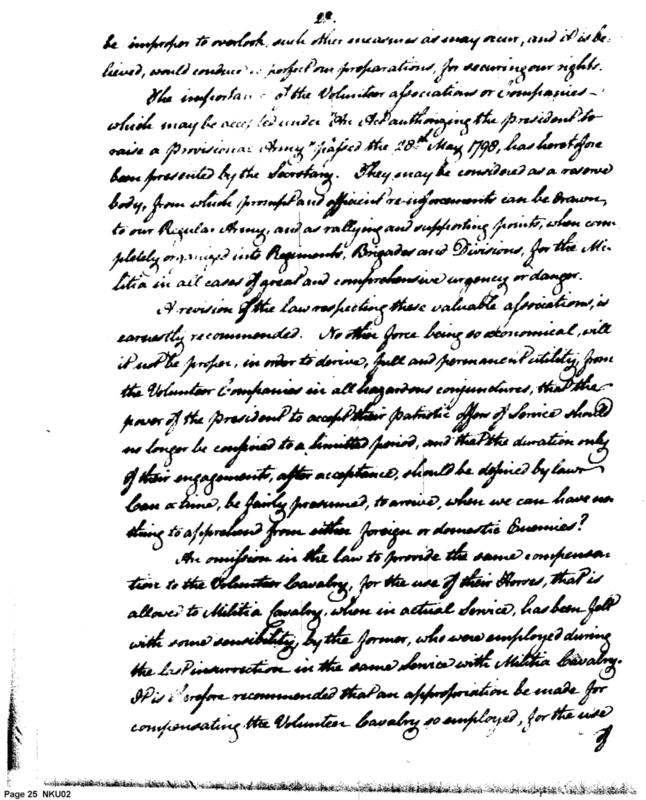 22.
be improper to overlook, such other measures as may occur, and it is be-
lieved, would conduce to perfect our preparations, for securing our rights.
The importance of the Volunteer associations or Companies—
which may be accepted under "An Act authorizing the president to
raise a Provisional Army" passed the 28th May 1798, has heretofore
been presented by the Secretary. They may be considered as a reserve
body, from which prompt and efficient re-inforcements can be drawn,
to our Regular Army, and as rallying and supporting points, when com-
pletely organized into Regiments, Brigades and Divisions, for the Mi-
litia in all cases of great and comprehensive urgency or danger.
A revision of the law respecting these valuable associations, is
earnestly recommended. No other force being so œconomical, will
it not be proper, in order to derive, full and permanent utility, from
the Volunteer Companies in all hazardous conjunctures, that the
power of the President to accept their patriotic offers of Service should
no longer be confined to a limitted period, and that the duration only
of their engagements, after acceptance, should be defined by law
Can a time, be fairly presumed, to arrive, when we can have no
thing to apprehend from either foreign or domestic Enemies?
An omission in the law to provide the same compensa-
tion to the Volunteer Cavalry, for the use of their Horses, that is
allowed to Militia Cavalry, when in actual Service, has been felt
with some sensibility, by the former, who were employed during
the last insurrection in the same Service with Militia Cavalry.
It is therefore recommended that an appropriation be made for
compensating the Volunteer Cavalry so employed, for the use
of
Page 25 NKU02